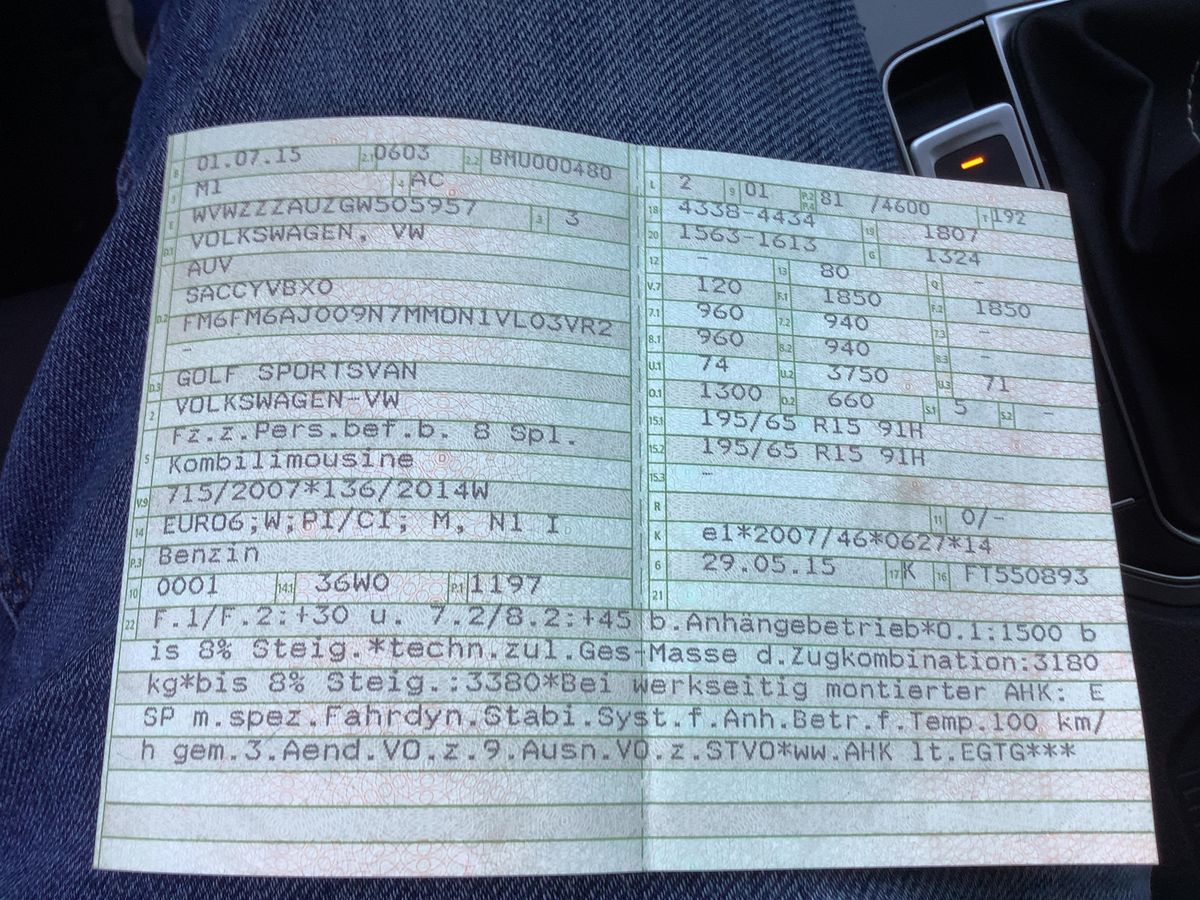 B 01.07.15 2.1 0603 2.2 BMU000480
J M1 4 AC
E WVWZZZAUZGW505957 3 3
D.1 VOLKSWAGEN, VW
AUV
SACCYVBX0
D.2 FM6FM6AJ009N7MMON1VL03VR2
-
D.3 GOLF SPORTSVAN
2 VOLKSWAGEN-VW
Fz.z.Pers.bef.b. 8 Spl.
5 Kombilimousine
V.9 715/2007*136/2014W
14 EURO6;W;PI/CI; M, N1 I
P.3 Benzin
10 0001 14.1 36W0 P.1 1197
L 2 9 01 P.2 P.4 81 /4600 T 192
18 4338-4434 19 1807
20 1563-1613 G 1324
12 - 13 80 Q -
V.7 120 F.1 1850 F.2 1850
7.1 960 7.2 940 7.3 -
8.1 960 8.2 940 8.3 -
U.1 74 U.2 3750 U.3 71
O.1 1300 O.2 660 S.1 5 S.2 -
15.1 195/65 R15 91H
15.2 195/65 R15 91H
15.3 -
R 11 0/-
K e1*2007/46*0627*14
6 29.05.15 17 K 16 FT550893
21
22 F.1/F.2:+30 u. 7.2/8.2:+45 b.Anhängebetrieb*O.1:1500 b
is 8% Steig.*techn.zul.Ges-Masse d.Zugkombination:3180
kg*bis 8% Steig.:3380*Bei werkseitig montierter AHK: E
SP m.spez.Fahrdyn.Stabi.Syst.f.Anh.Betr.f.Temp.100 km/
h gem.3.Aend.VO.z.9.Ausn.VO.z.STVO*ww.AHK lt.EGTG***